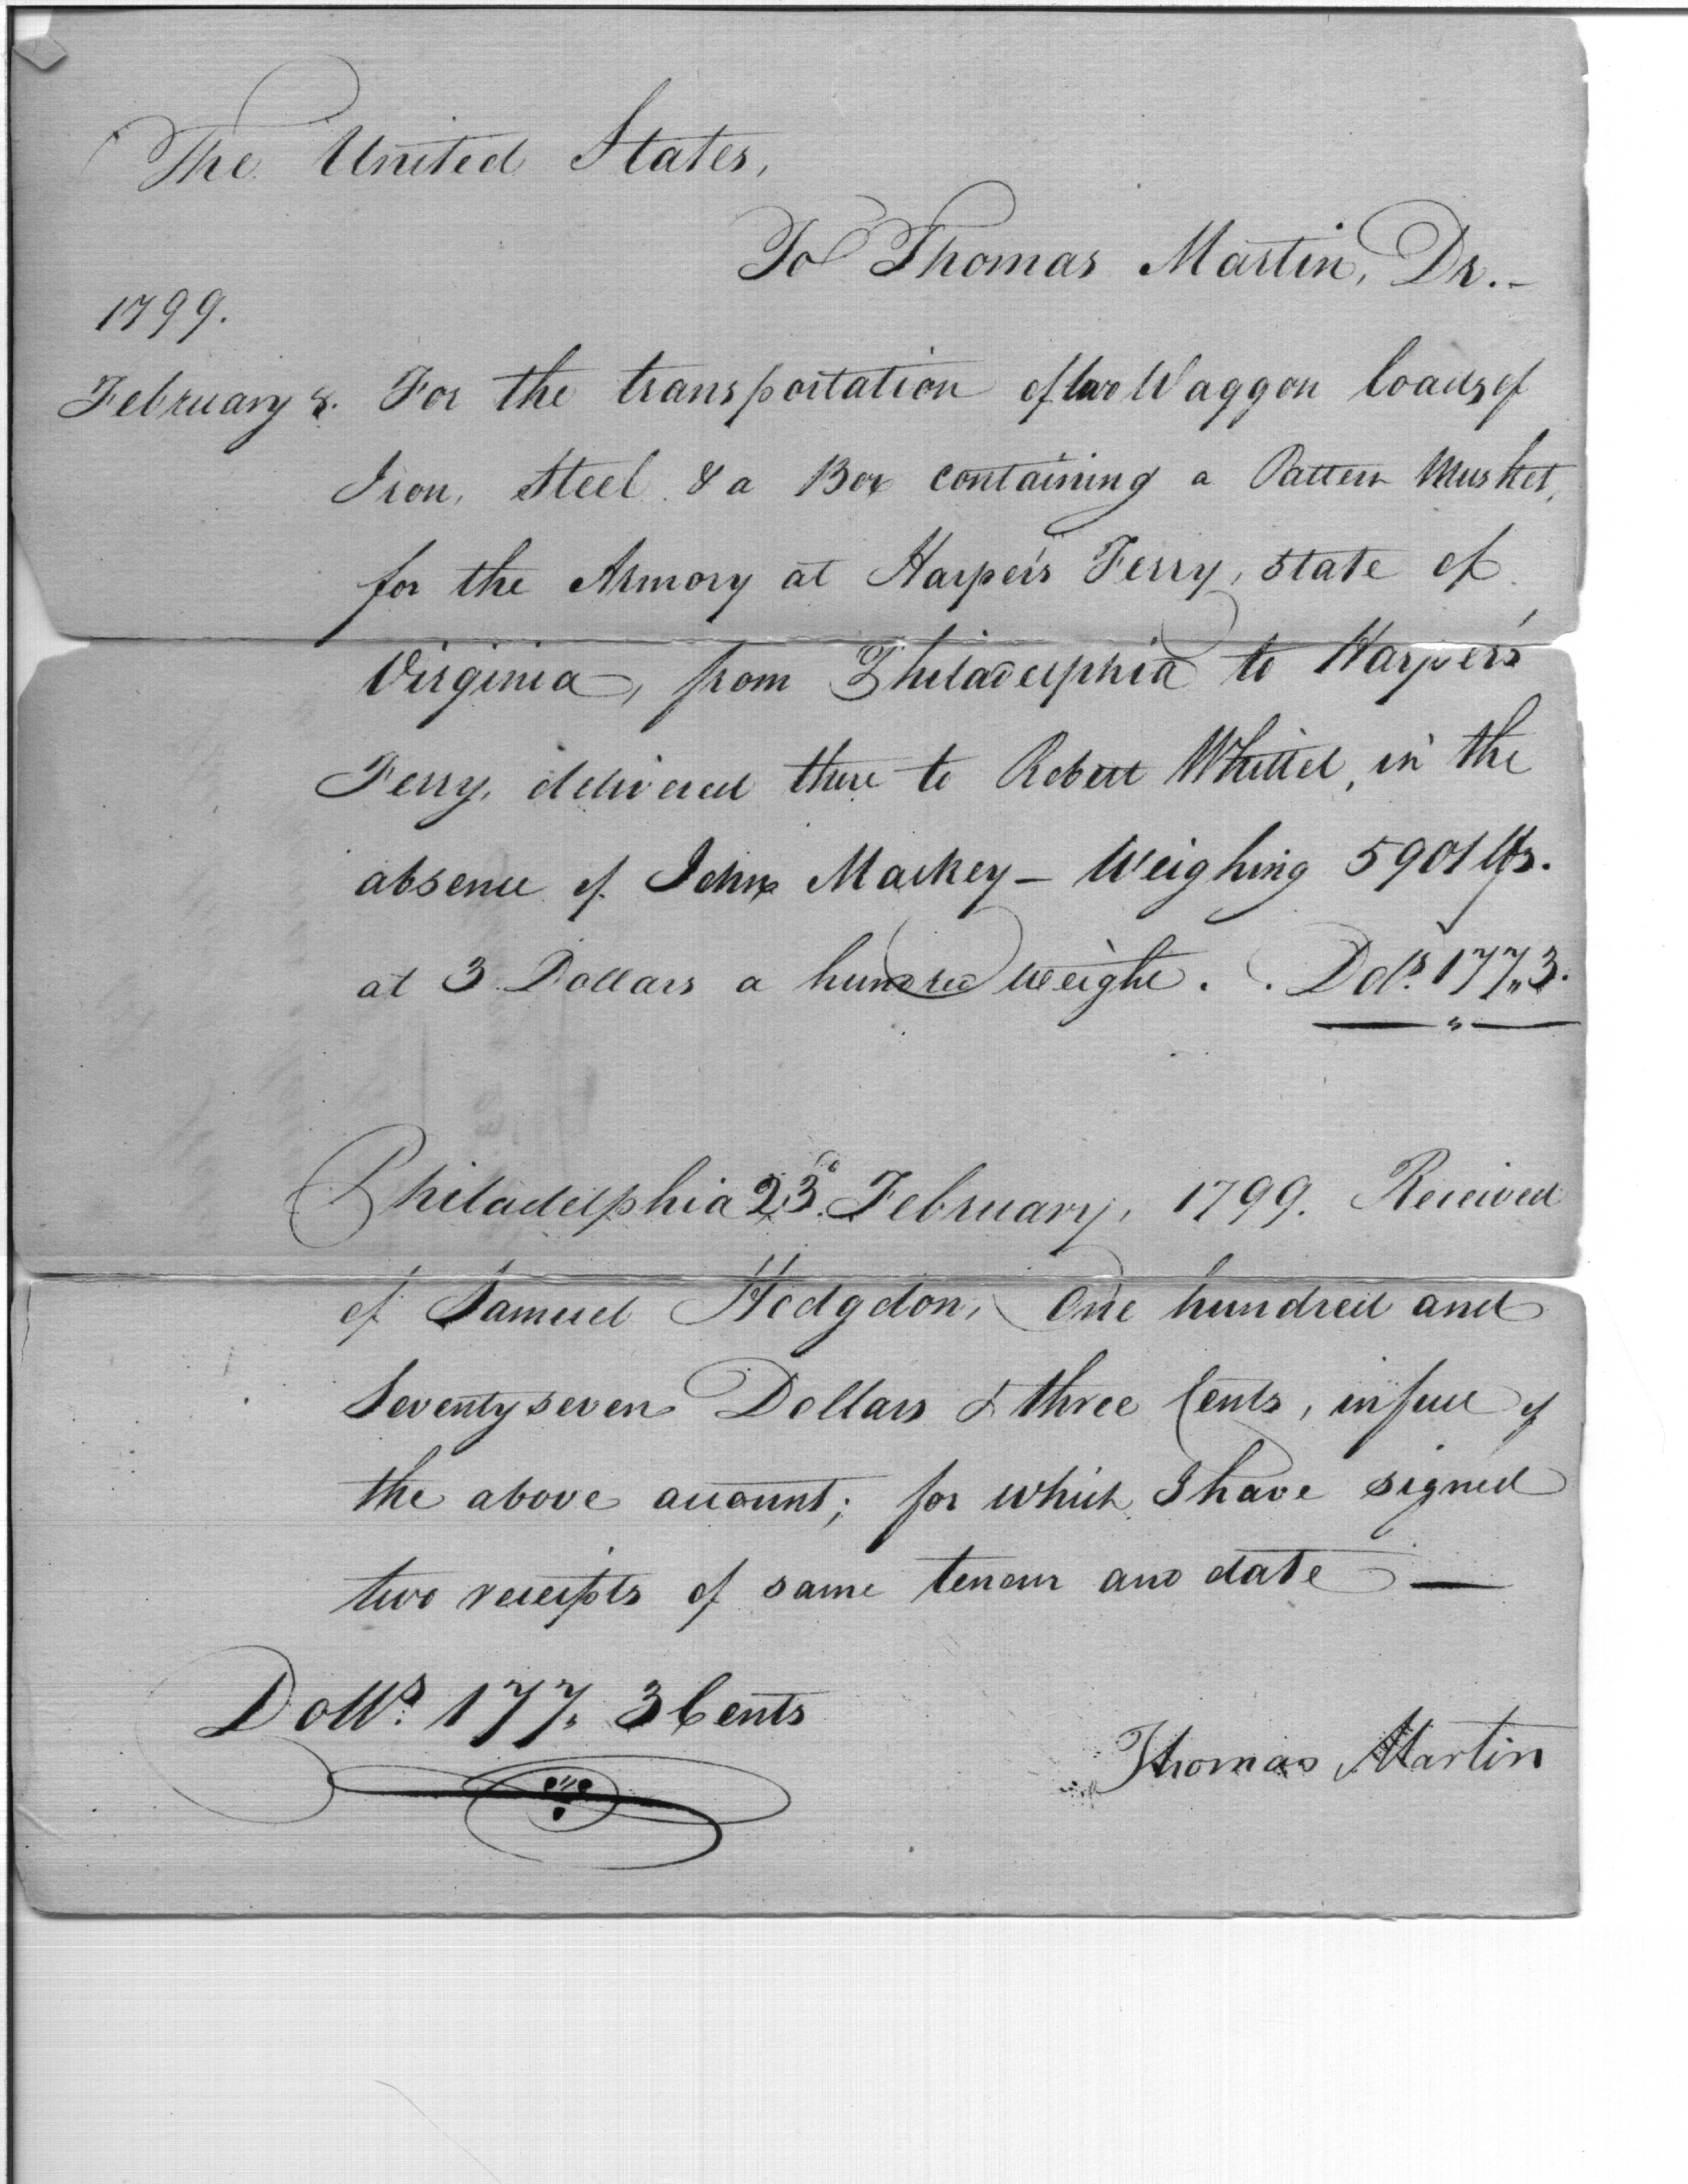 The United States,
To Thomas Martin, Dr. -
1799.
February 8. For the transportation of two Waggon loads of
Iron, Steel & a Box containing a Pattern Musket,
for the Armory at Harper's Ferry, state of
Virginia, from Philadelphia to Harper's
Ferry, delivered there to Robert Whittel, in the
absence of John Mackey - Weighing 5901 lbs.
at 3 Dollars a hundred weight. . Dols. 177,,3.
Philadelphia 23d. February, 1799. Received
of Samuel Hodgdon, One hundred and
Seventy seven Dollars & three Cents, in full of
the above account; for which I have signed
two receipts of same tenour and date —
Dolls. 177. 3 Cents
Thomas Martin